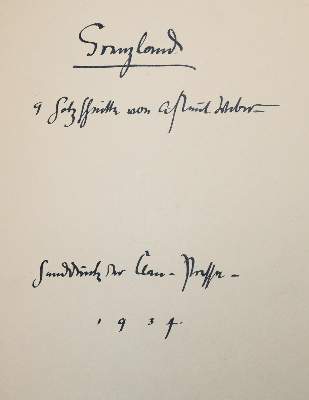 Grenzland
9 Holzschnitte von A Paul Weber
Handdruck der Clan-Presse
1934